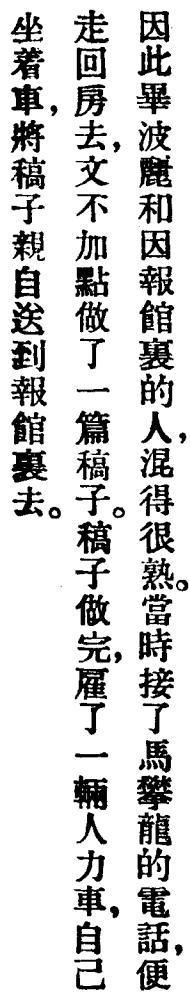 因此畢波麗和因報館裏的人，混得很熟。當時接了馬攀龍的電話，便
走回房去，文不加點做了一篇稿子。稿子做完，雇了一輛人力車，自己
坐着車，將稿子親自送到報館裏去。